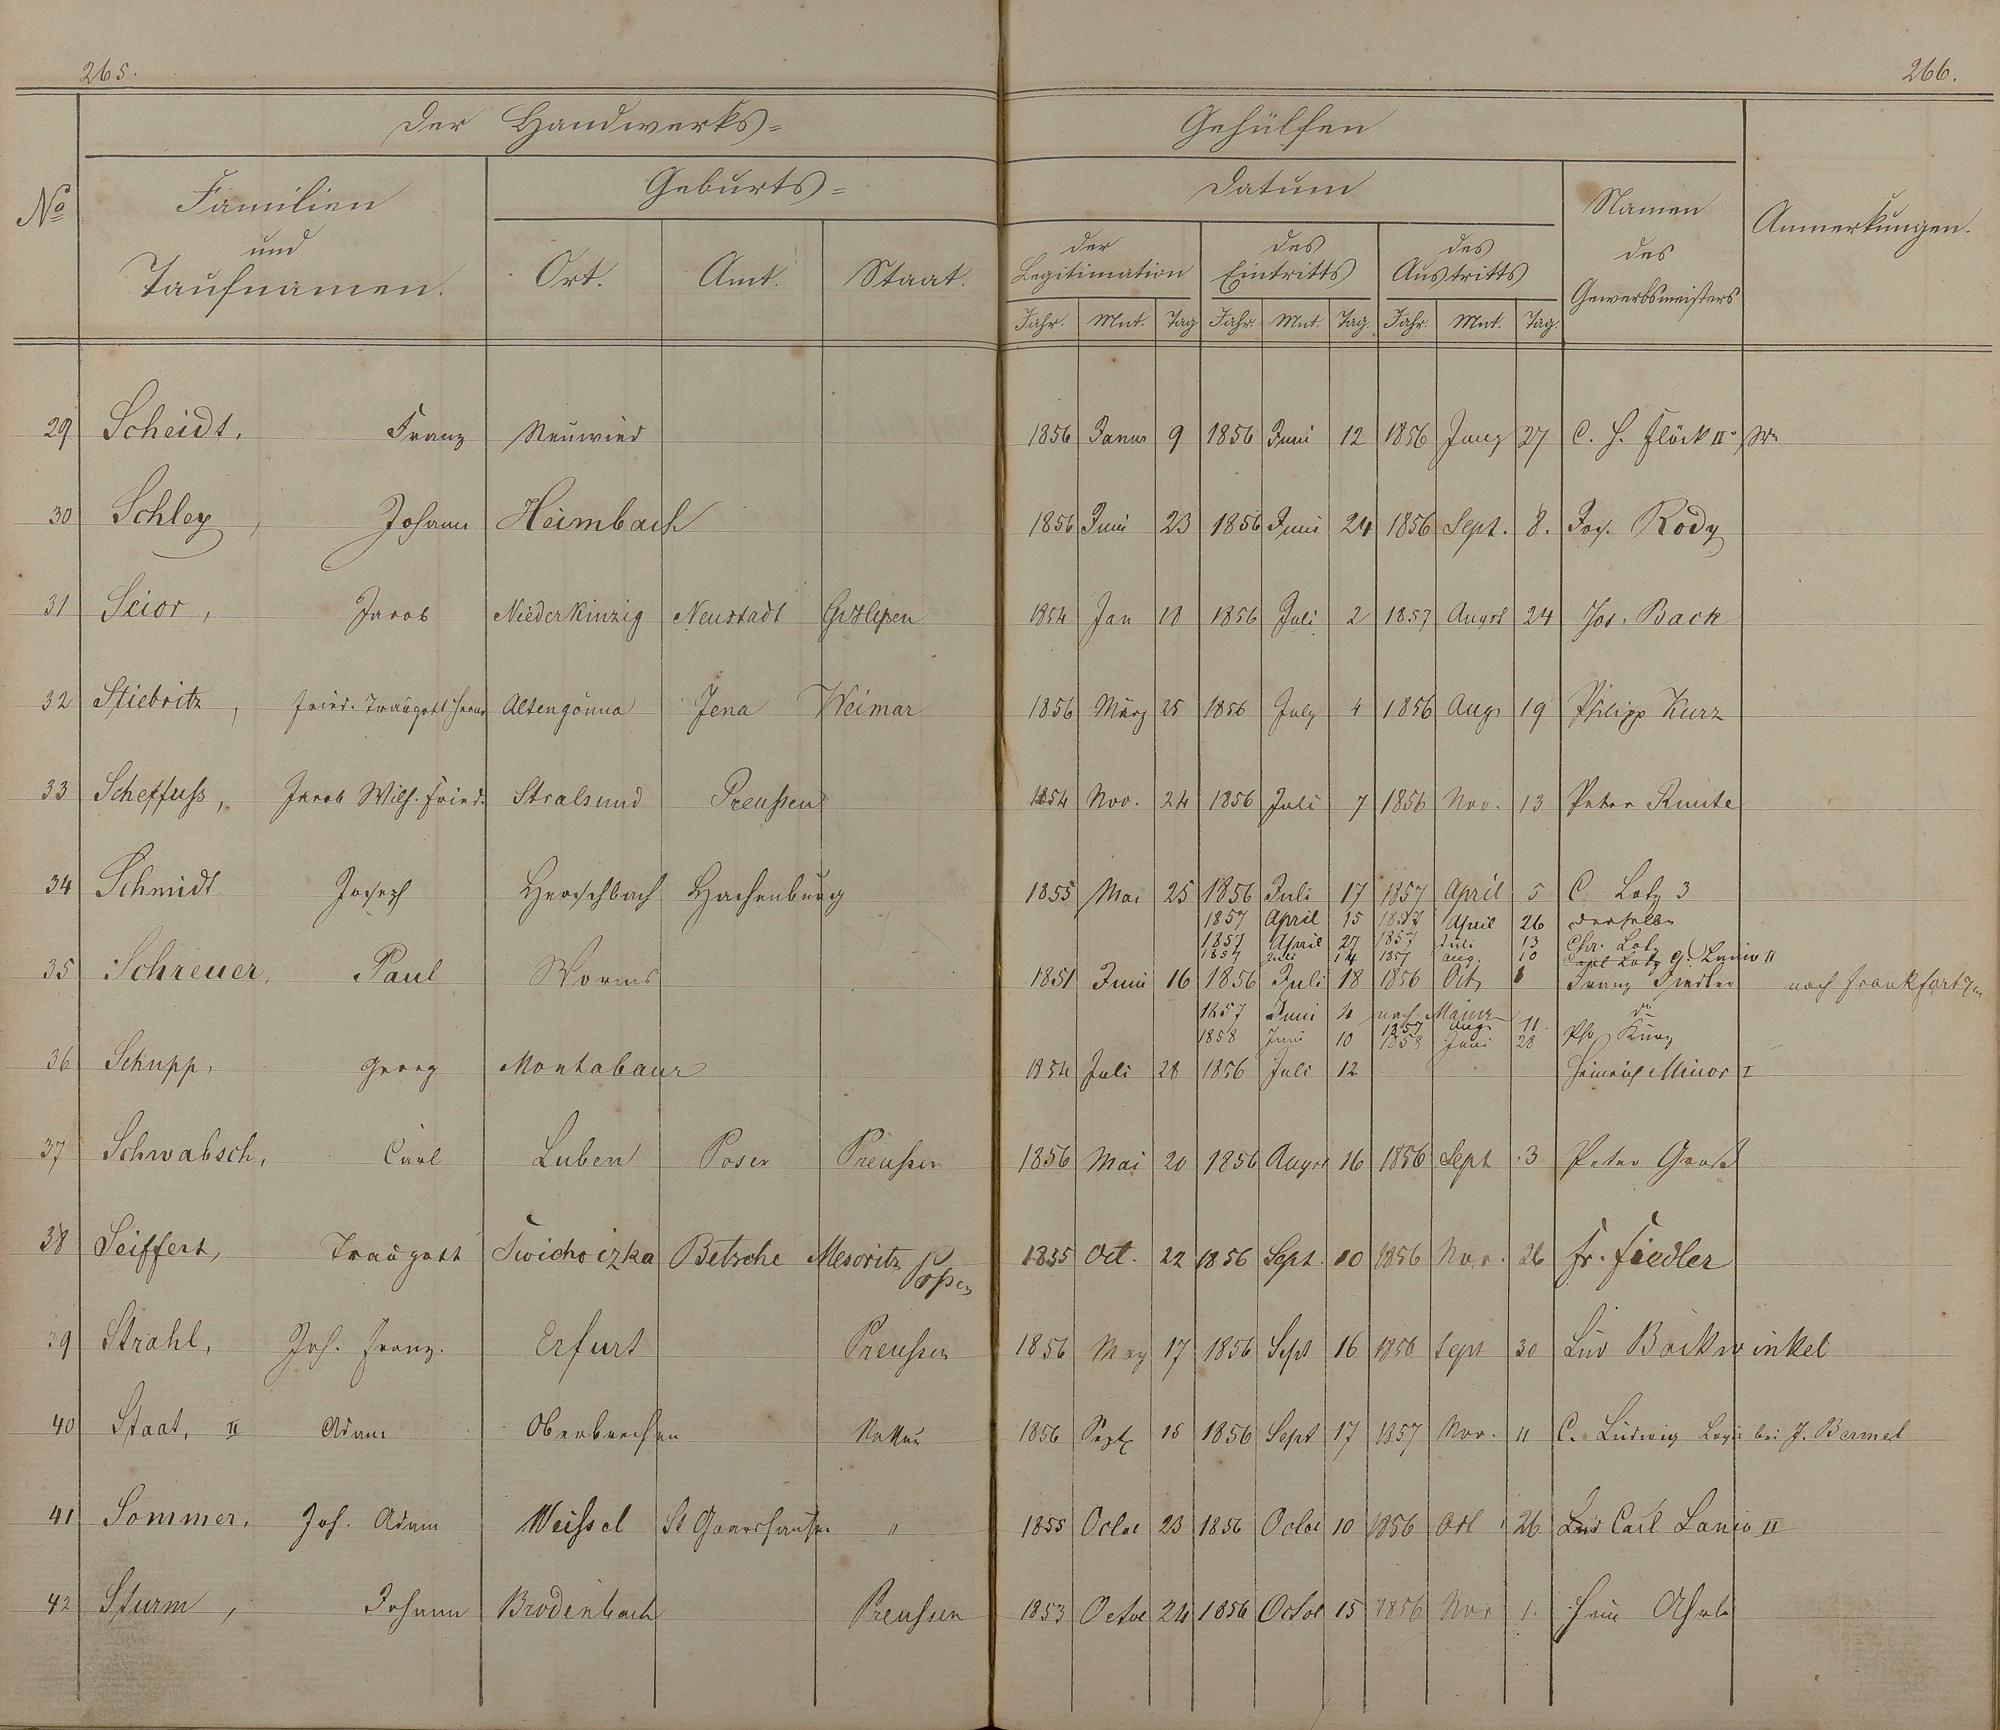 265.
266.
Der Handwerks=
Gehülfen
No
Familien
und
Taufnamen.
Geburts=
Ort. Amt. Staat.
Datum
der
Legitimation
des
Eintritts
des
Austritts
Jahr. Mnt. Tag Jahr. Mnt. Tag. Jahr. Mnt. Tag.
Namen
des
Gewerbsmeisters
Anmerkungen.
29 Scheidt, Franz Neuwied 1856 Januar 9 1856 Juni 12 1856 27 C. H. Flöck II
30 Schley, Johann Heimbach 1856 Juni 23 1856 Juni 24 1856 Sept. 8. Jos. Rody
31 Seior, Jacob Niederkinzig Neustadt 1854 Jan 18 1856 Juli 2 1857 August 24 Jos. Back
32 Stiebritz, Fried. Traugott Altengönna Jena Weimar 1856 März 25 1856 July 4 1856 Aug 19 Philipp Kurz
33 Scheffuß, Jacob Wilh. Fried. Stralsund Preußen 1854 Nov. 24 1856 Juli 7 1856 Nov. 13 Peter
34 Schmidt Joseph Herschbach Hachenburg 1855 Mai 25 1856 Juli 17 1857 April 5 C. Lotz 3
1857 April 15 1857 April 26 derselbe
1857 April 27 1857 Juli 13 Chr. Lotz
1857 Juli 14 1857 Aug. 10 Carl Lotz G. Lanio II
35 Schreuer, Paul Worms 1851 Juni 16 1856 Juli 18 1856 Oct Franz Fiedler nach Frankfurt
1857 Juni 4 nach Mainz
1857 Aug 11.
1858 Juni 10 1858 Juni 28 Ph. Kurz
36 Schupp, Georg Montabaur 1854 Juli 28 1856 Juli 12 Heinrich Minor I
37 Schwabsch, Carl Luben Posen Preußen 1856 Mai 20 1856 August 16 1856 Sept 3 Peter Groß
38 Seiffert, Traugott Swichoczka Betsche Meseritz Posen 1855 Oct. 22 1856 Sept. 10 1856 Nov. 26 Fr. Fiedler
39 Strahl, Joh. Franz. Erfurt Preußen 1856 May 17 1856 Sept 16 1856 Sept 30 Lud Böckwinkel
40 Staat, II Adam Oberbrechen Nassau 1856 Sept 15 1856 Sept 17 1857 Nov. 11 C. Ludwig Logis bei J. Bermel
41 Sommer, Joh. Adam Weissel St Goarshausen " 1855 Octbr 23 1856 Octbr 10 1856 Oct 26 Lud Carl Lanio II
42 Sturm, Johann Brodenbach Preussen 1853 Octbr 24 1856 Octbr 15 1856 Nov 1.